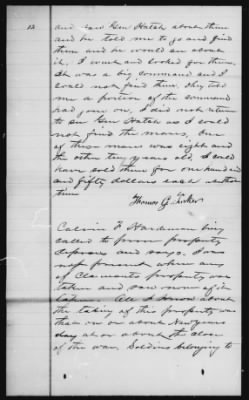 13
and saw Gen Hatch about them
and he told me to go and find
them and he would see about
it. I went and looked for them.
It was a big command and I
could not find them. they told
me a portion of the command
had gone on. I did not return
to see Gen Hatch as I could
not find the mares. One
of these mares was eight and
the other ten years old. I could
have sold them for one hundred
and fifty dollars each
them
Thomas G. Tucker
Calvin F. Hardeman being
called to prove property
deposes and says. I was
not present when any
of Claimants property was
taken and saw none of it
taken. All I know about
the taking of this property was
that on or about New years
day at or about the close
of the war, Soldiers belonging to